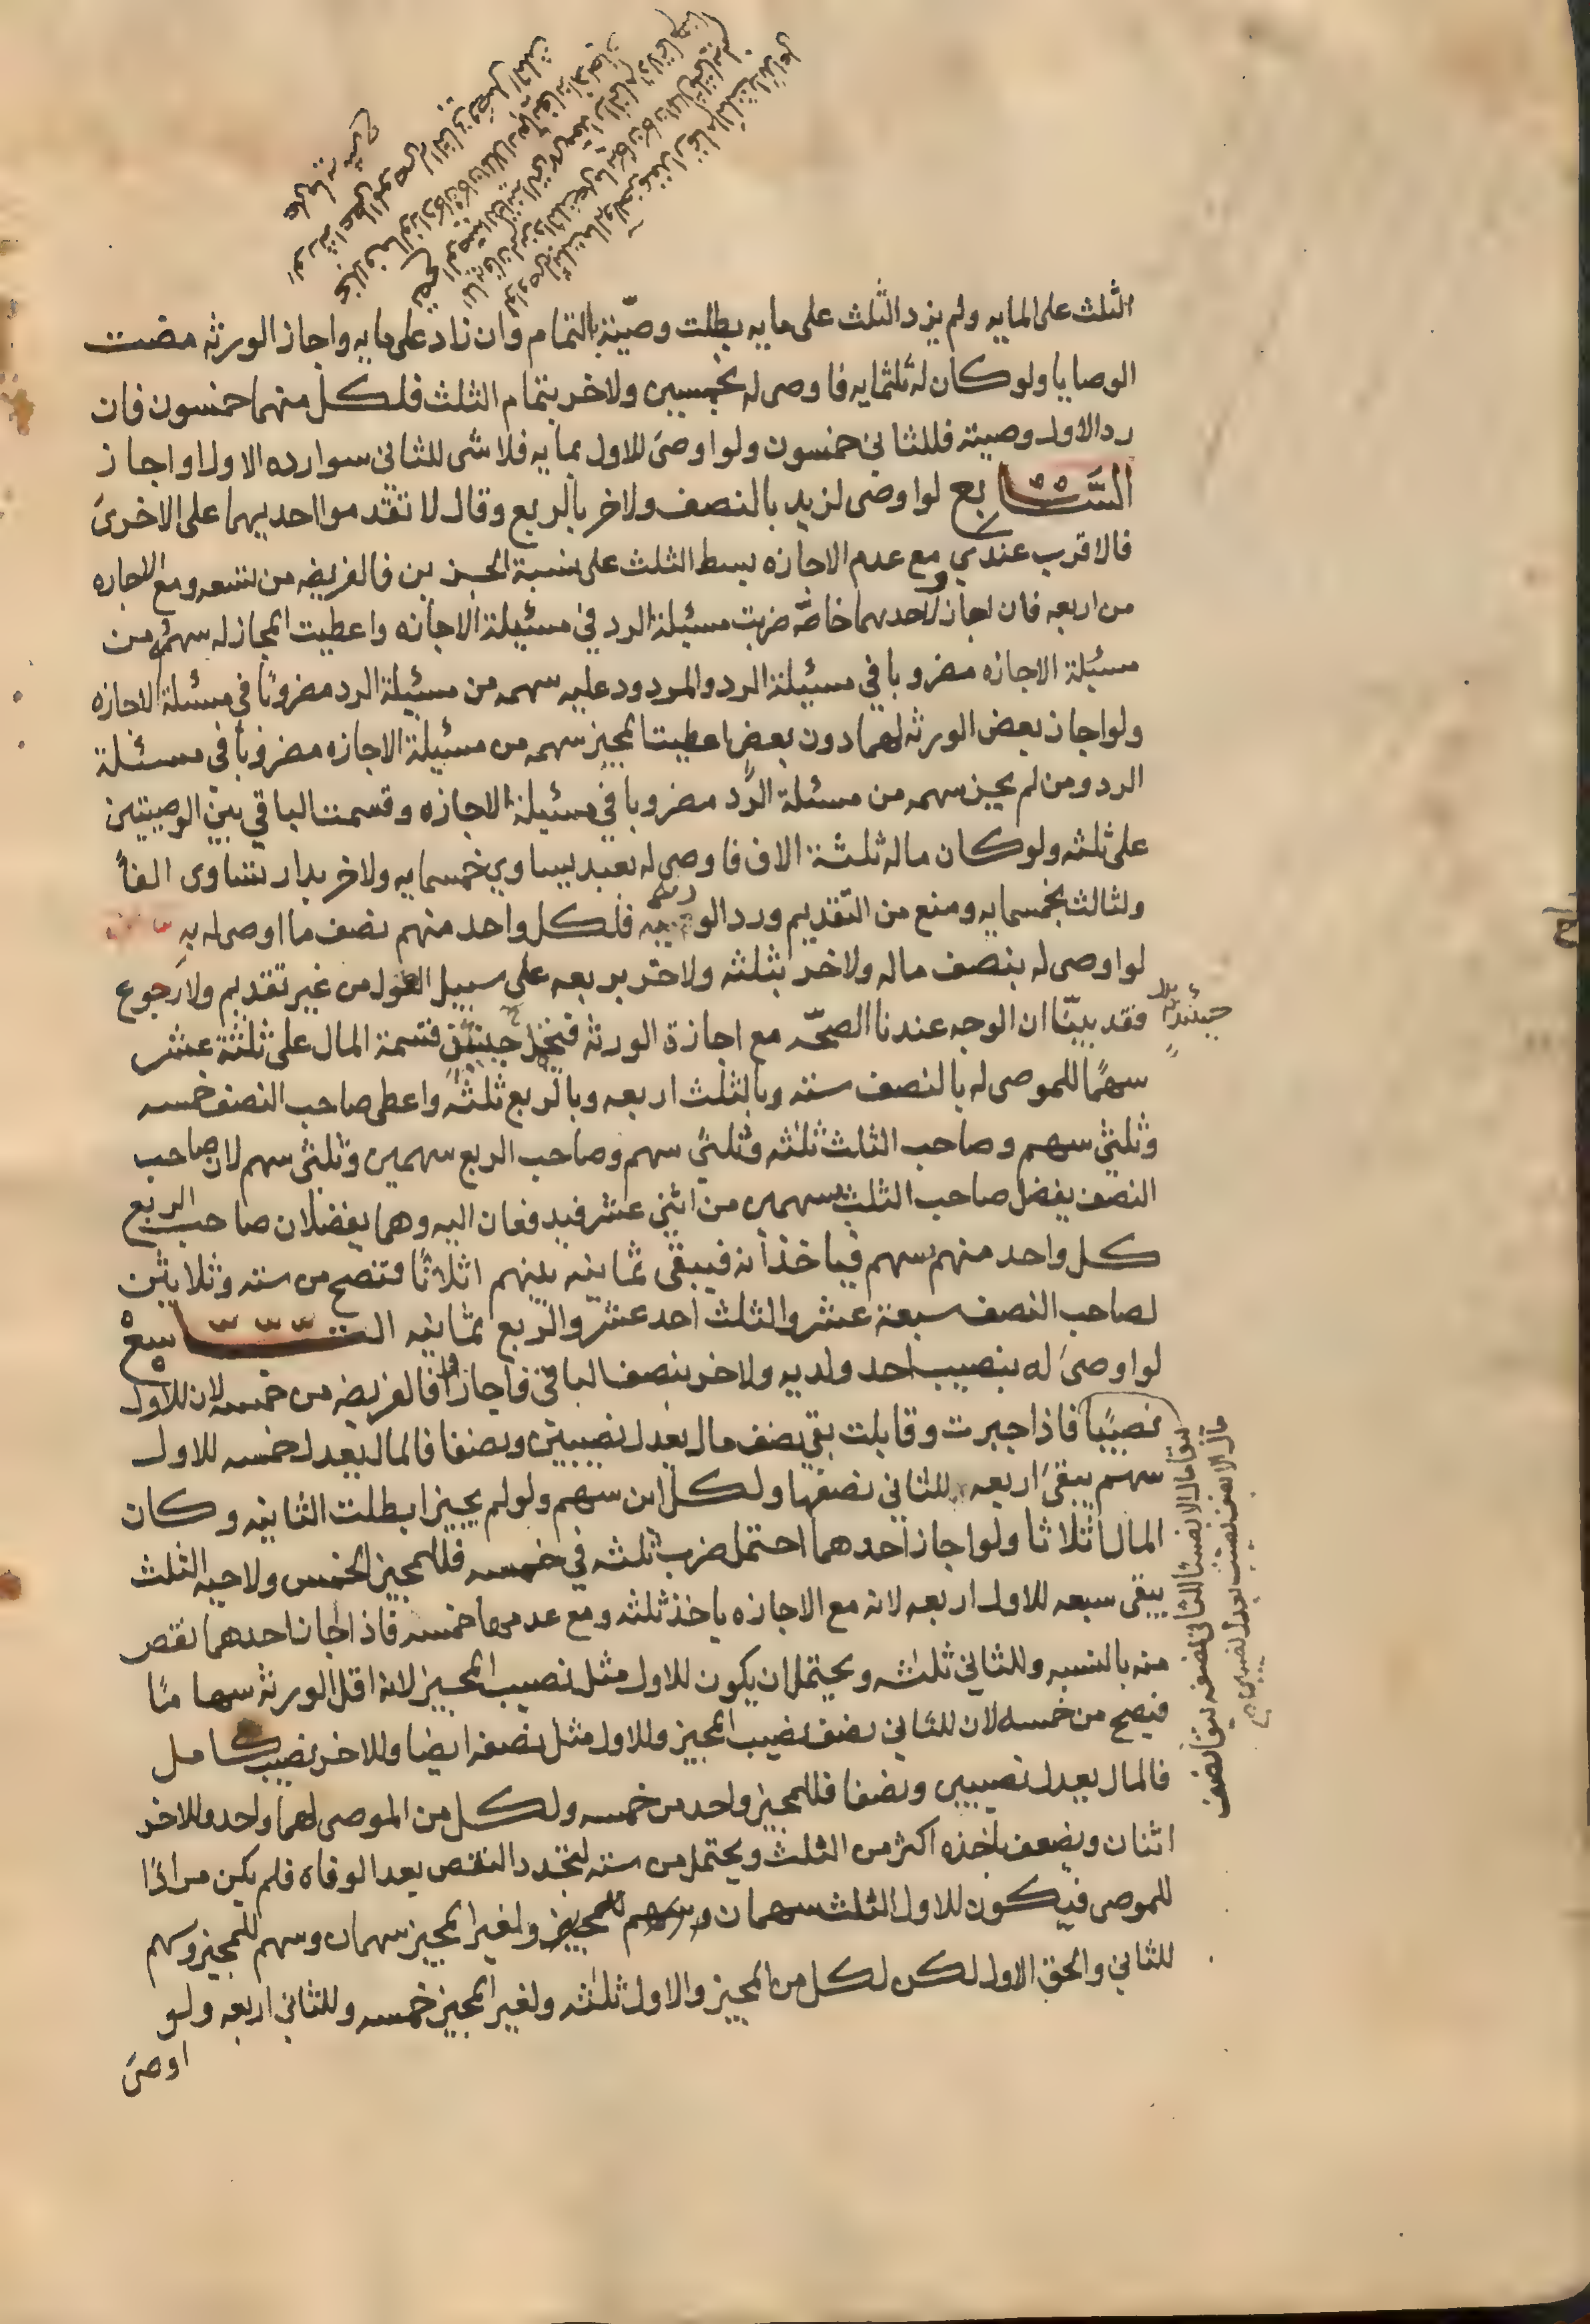 الثلث على المايه ولم يزد الثلث على مايه بطلت وصيّة التمام وان زاد على مايه واجاز الورثه مضت
الوصايا ولو كان له ثلثمايه فاوصى له بخمسين ولاخر بتمام الثلث فلكل منهما خمسون فان
رد الاول وصيته فللثاني خمسون ولو اوصى للاول بمايه فلا شى للثاني سوا رده الاول او اجاز
السَّابع لو اوصى لزيد بالنصف ولاخر بالربع وقال لا تقدموا احديهما على الاخرى
فالاقرب عندي مع عدم الاجازه بسط الثلث على نسبة الجزين فالفريضه من تسعه ومع الاجازه
من اربعه فان اجازوا لاحدهما خاصّه ضربت مسئيلة الرد في مسئيلة الاجازه واعطيت المجاز له سهمه من
مسئيلة الاجازه مضروبا في مسئيلة الرد والمردود عليه سهمه من مسئيلة الرد مضروبًا في مسئلة الاجازه
ولو اجاز بعض الورثه لهما دون بعض اعطيت المجيز سهمه من مسئيلة الاجازه مضروبا في مسئلة
الرد ومن لم يجيز سهمه من مسئلة الرّد مضروبا في مسئيلة الاجازه وقسمت الباقي بين الوصيتين
على ثلثه ولو كان ماله ثلثة الاف فاوصى له بعبد يساوي خمسمايه ولاخر بدار تساوى الفاً
ولثالث بخمسمايه ومنع من التقديم ورد الورثه فلكل واحد منهم نصف ما اوصى له به
لو اوصى له بنصف ماله ولاخر بثلثه ولاخر بربعه على سبيل العول من غير تقديم ولا رجوع
فقد بينّا ان الوجه عندنا الصحّه مع اجازة الورثه فيحتمل حينئذٍ قسمة المال على ثلثة عشر
سهمًا للموصى له بالنصف سته وبالثلث اربعه وبالربع ثلثه واعطى صاحب النصف خمسه
وثلثي سهم وصاحب الثلث ثلثه وثلثي سهم وصاحب الربع سهمين وثلثي سهم لان صاحب
النصف يفضل صاحب الثلث بسهمين من اثني عشر فيدفعان اليه وهما يفضلان صاحب الربع
كل واحد منهم بسهم فياخذانه فيبقى ثمانيه بينهم اثلاثًا فتصح من سته وثلاثين
لصاحب النصف سبعة عشر والثلث احد عشر والربع ثمانيه التاسع
لو اوصىَ له بنصيب احد ولديه ولاخر بنصف الباقي فاجازا فالفريضه من خمسه لان للاول
نصيبًا فاذا جبرت وقابلت بقي نصف مال يعدل نصيبين ونصفا فالمال يعدل خمسه للاول
سهم يبقىَ اربعه للثاني نصفها ولكل ابن سهم ولو لم يجيزا بطلت الثانيه وكان
المال اثلاثا ولو اجاز احدهما احتمل ضرب ثلثه في خمسه فللمجيز الخمس ولاخيه الثلث
يبقى سبعه للاول اربعه لانه مع الاجازه ياخذ ثلثه ومع عدمها خمسه فاذا اجازنا احدهما نقص
منه بالنسبه وللثاني ثلثه ويحتمل ان يكون للاول مثل نصيب المجيز لانه اقل الورثه سهامًا
فيصح من خمسه لان للثاني نصف نصيب المجيز وللاول مثل نصفه ايضا وللاخر نصيب كامل
فالمال يعدل نصيبين ونصفا فللمجيز واحد من خمسه ولكل من الموصى لهما واحد وللاخر
اثنان ويضعف باخذه اكثر من الثلث ويحتمل من سته لتجدد النقص بعد الوفاه فلم يكن مرادًا
للموصى فيكون للاول الثلث سهمان ولغير المجيز سهمان وسهم للمجيز وسهم
للثاني والحق الاول لكن لكل من المجيز والاول ثلثه ولغير المجيز خمسه وللثاني اربعه ولو
اوصىَ
حينئذٍ